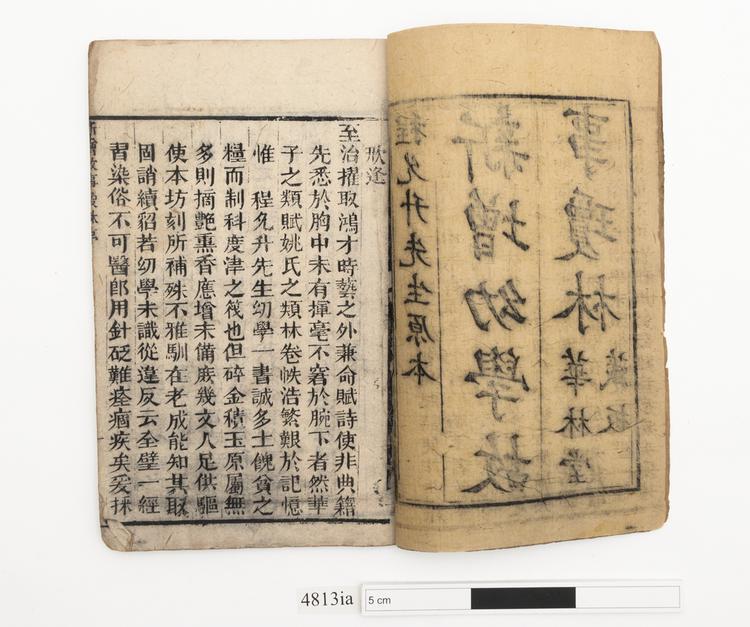 程允升先生原本
新增幼學故
事瓊林
華林堂
藏板
欣逢
至治擢取鴻才時藝之外兼命賦詩使非典籍
先悉於胸中未有揮毫不窘於腕下者然華
子之類賦姚氏之類林卷帙浩繁艱於記憶
惟 程允升先生幼學一書誠多士餽貧之
糧而制科度津之筏也但碎金積玉原屬無
多則摘艷熏香應增未備庶幾文人足供驅
使本坊刻所補殊不雅馴在老成能知其取
固誚續貂若幼學未識從違反云全璧一經
習染俗不可醫郎用針砭難痊痼疾矣爰採
4813ia
5 cm